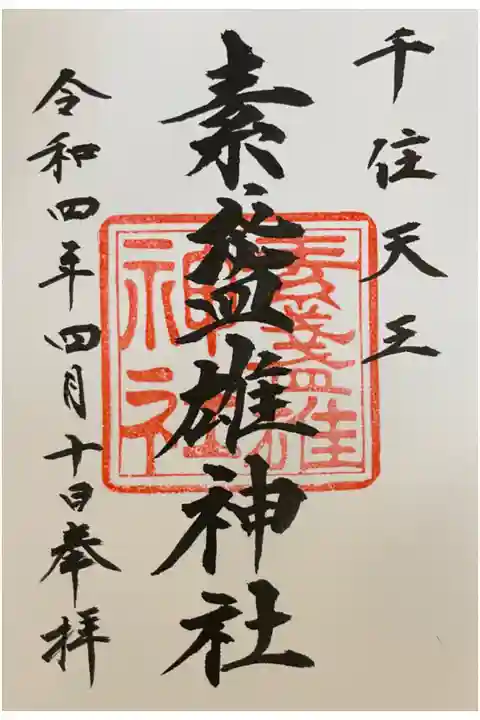 千住天王
素盞雄神社
令和四年四月十日奉拝
素盞雄
神社